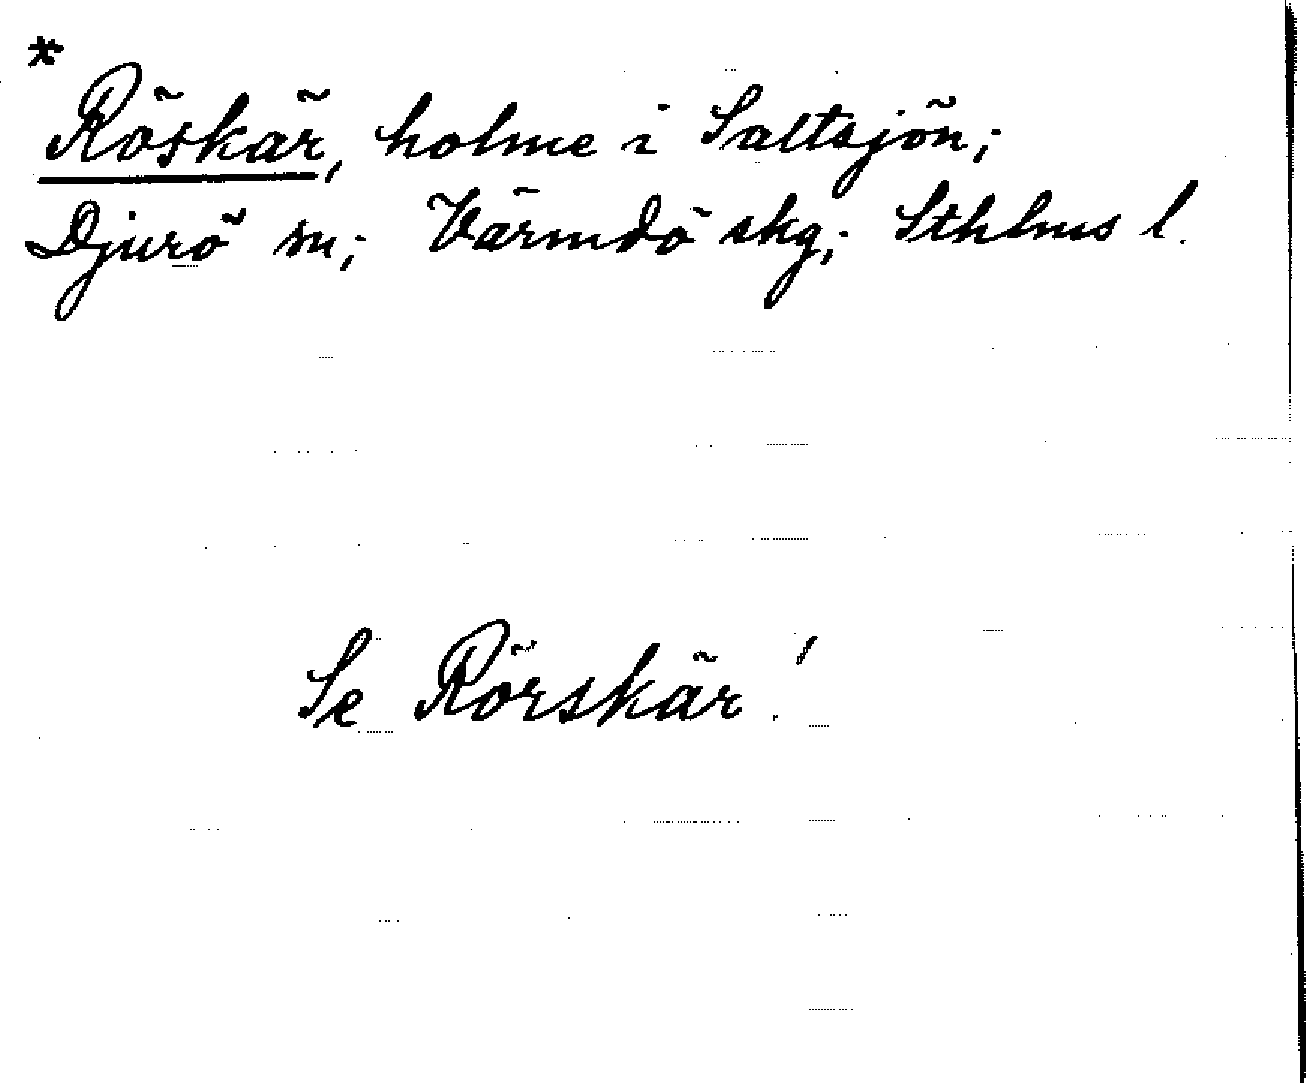 *
Röskär, holme i Saltsjön;
Djurö sn; Värmdö skg; Sthlms l.
Se Rörskär!